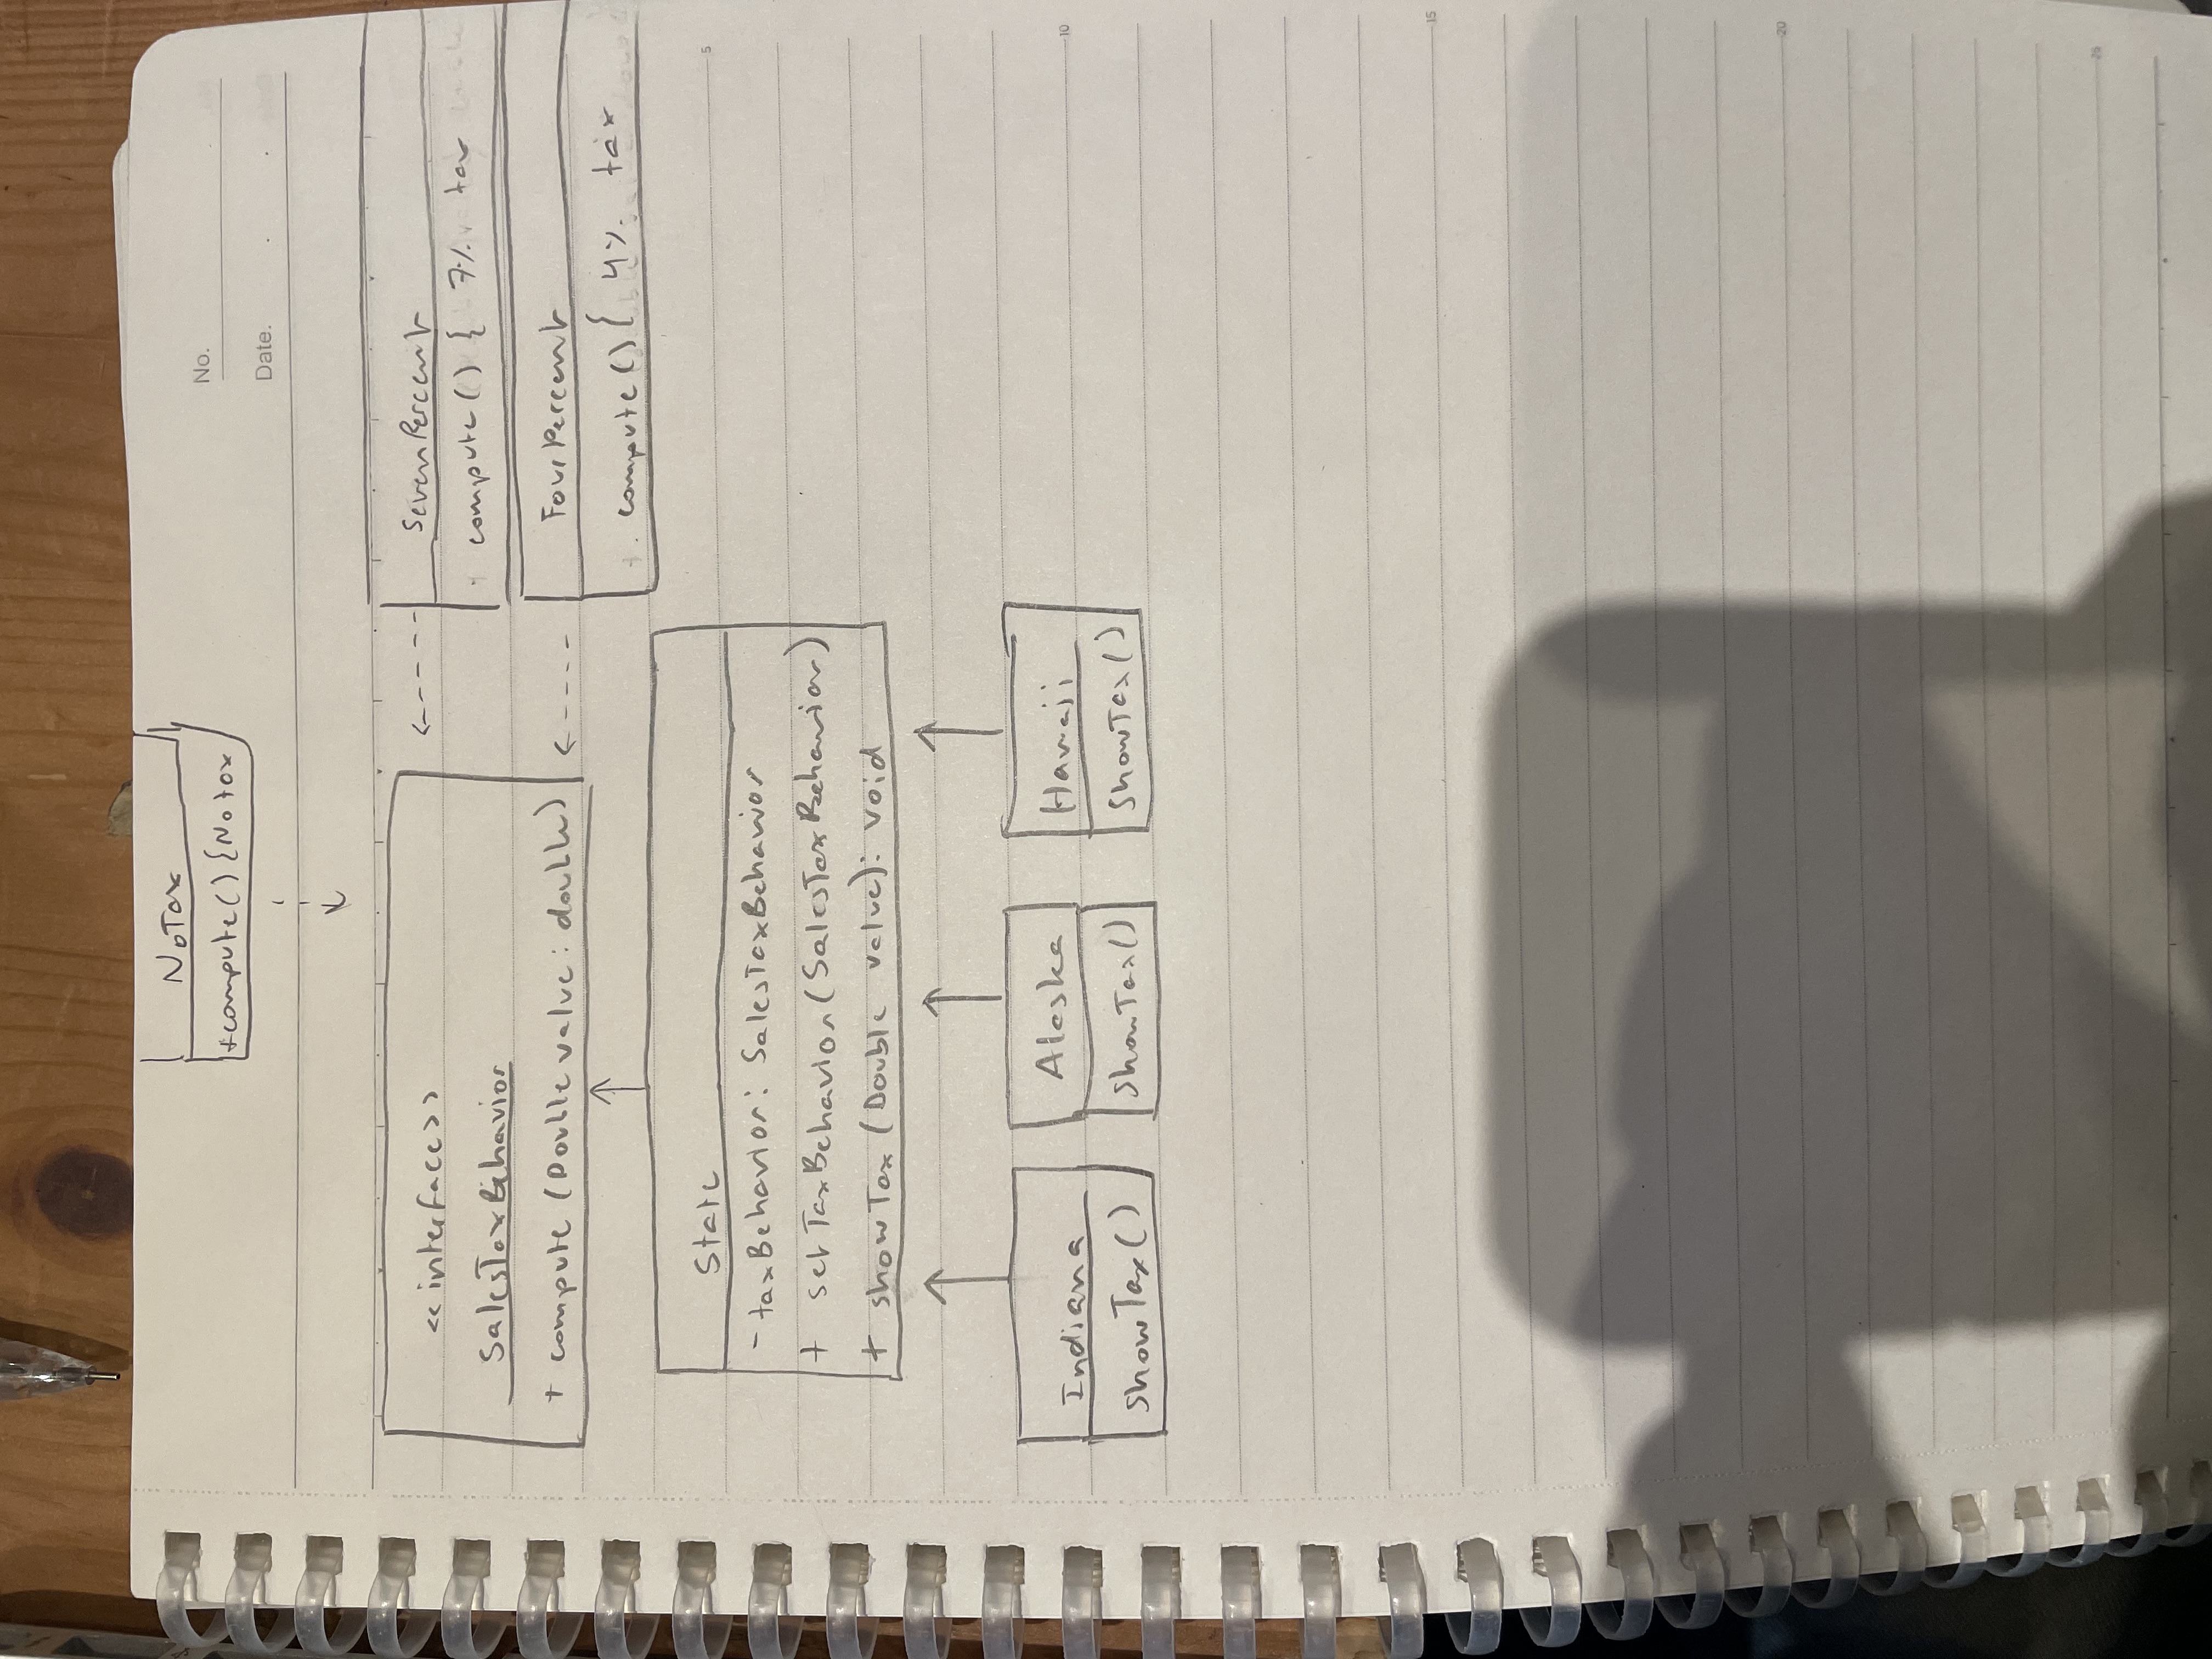 NoTax
+compute() {No tax
No.
Date.
<<interface>>
SalesTaxBehavior
+ compute (Double value: double)
SevenPercent
+ compute() { 7% tax
FourPercent
+ compute() { 4% tax
State
- taxBehavior: SalesTaxBehavior
+ setTaxBehavior(SalesTaxBehavior)
+ showTax (Double value): void
Indiana
showTax()
Alaska
showTax()
Hawaii
showTax()
5
10
15
20
25